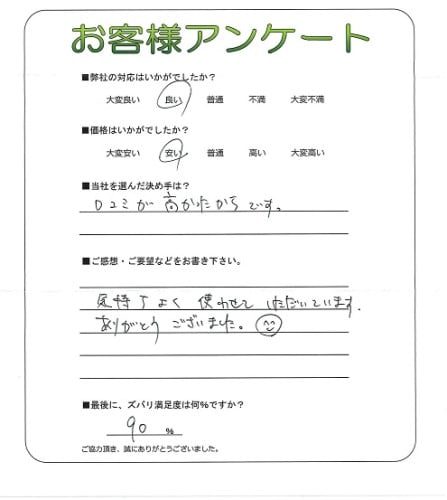 お客様アンケート
■弊社の対応はいかがでしたか?
大変良い 良い 普通 不満 大変不満
■価格はいかがでしたか?
大変安い 安い 普通 高い 大変高い
■当社を選んだ決め手は?
口コミが高かったからです。
■ご感想・ご要望などをお書き下さい。
気持ちよく使わせていただいています.
ありがとうございました。
■最後に、ズバリ満足度は何%ですか?
90 %
ご協力頂き、誠にありがとうございました。